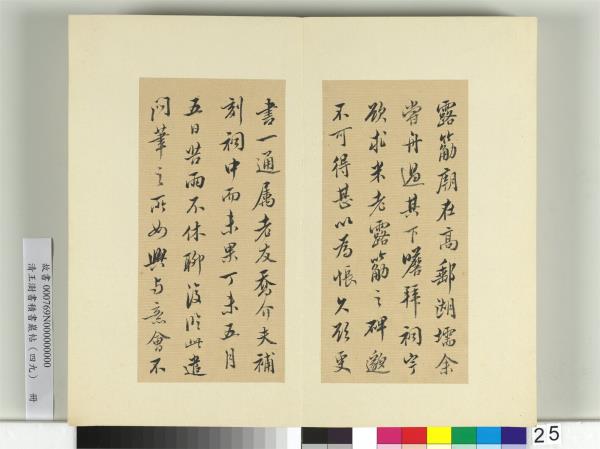 露筋廟在高郵湖壖余
嘗舟過其下瞻拜祠宇
欲求米老露筋之碑邈
不可得甚以為悵久欲更
書一通属老友喬介夫補
刻祠中而未果丁未五月
五日苦雨不休聊復臨此遣
悶筆之所如興與意會不
故書000769N000000000
清王澍書積書巖帖(四九) 冊
25